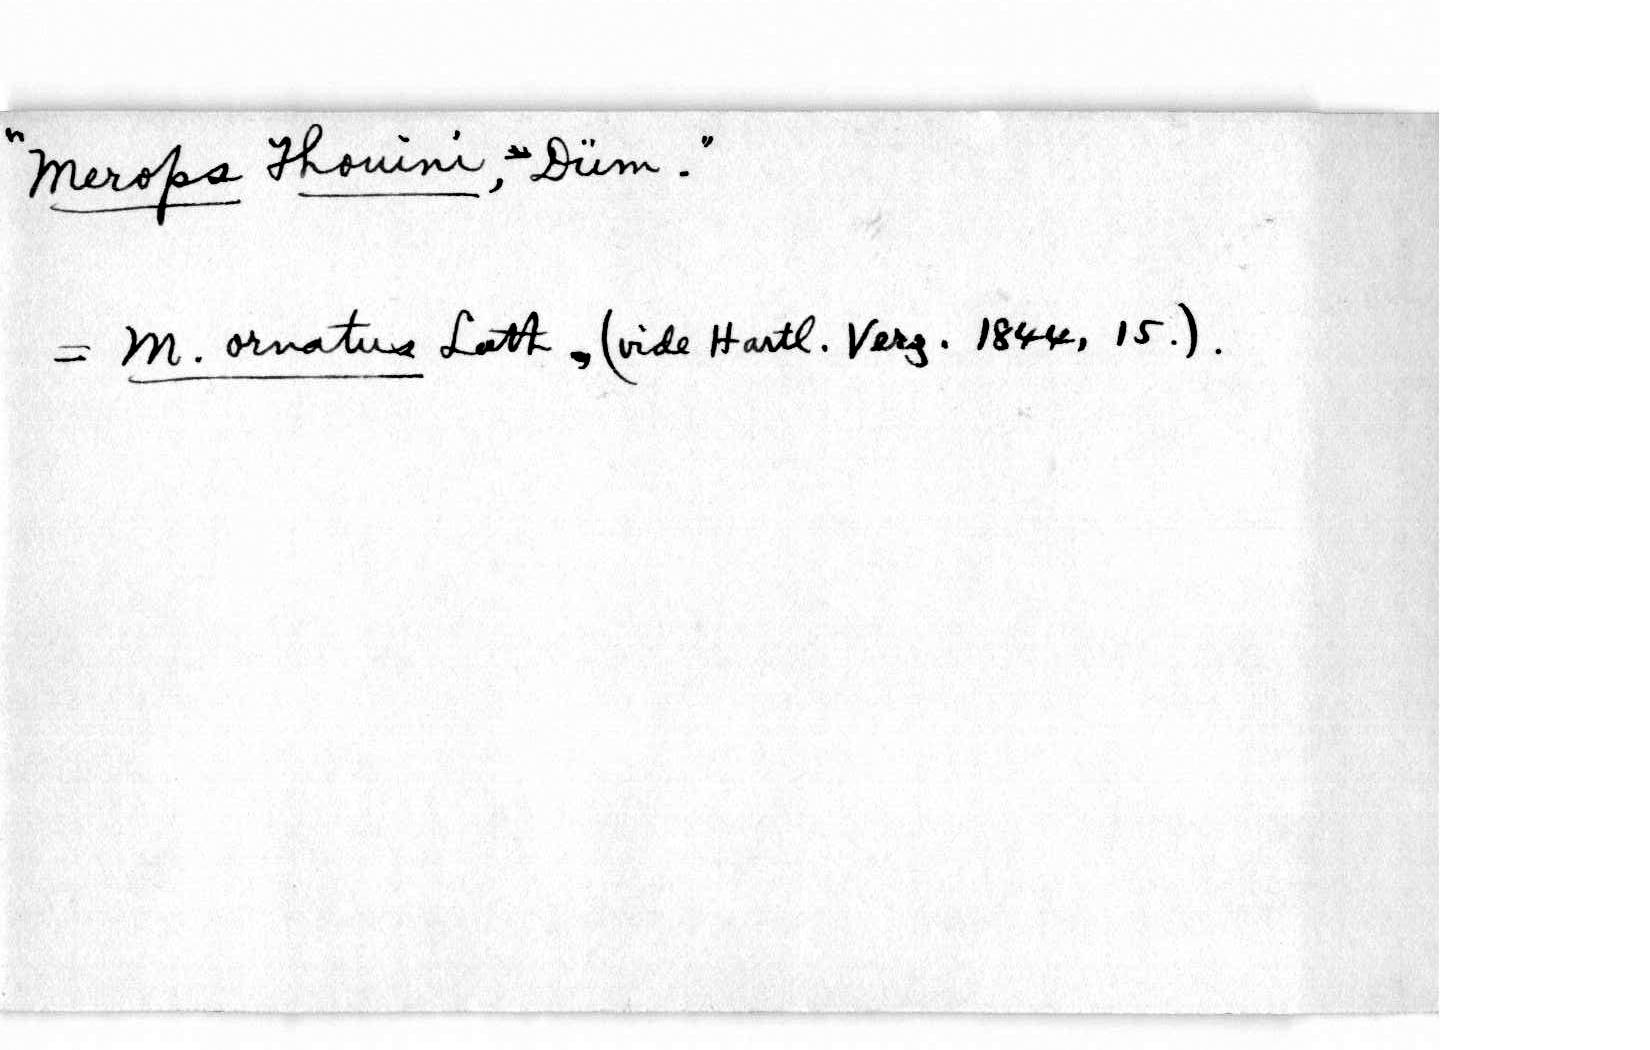 "Merops Thouini, Düm."
= M. ornatus Lath, (vide Hartl. Verz. 1844, 15.).